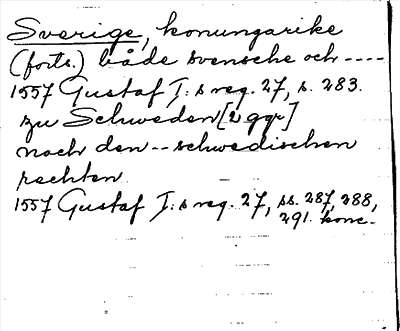 Sverige, konungarike
(forts.) både svensche och ----
1557 Gustaf I:s reg. 27, s. 283.
zu Schweden [2 ggr]
nach den -- schwedischen
rechten
1557 Gustaf I:s reg. 27, ss. 287, 288,
291. konc.